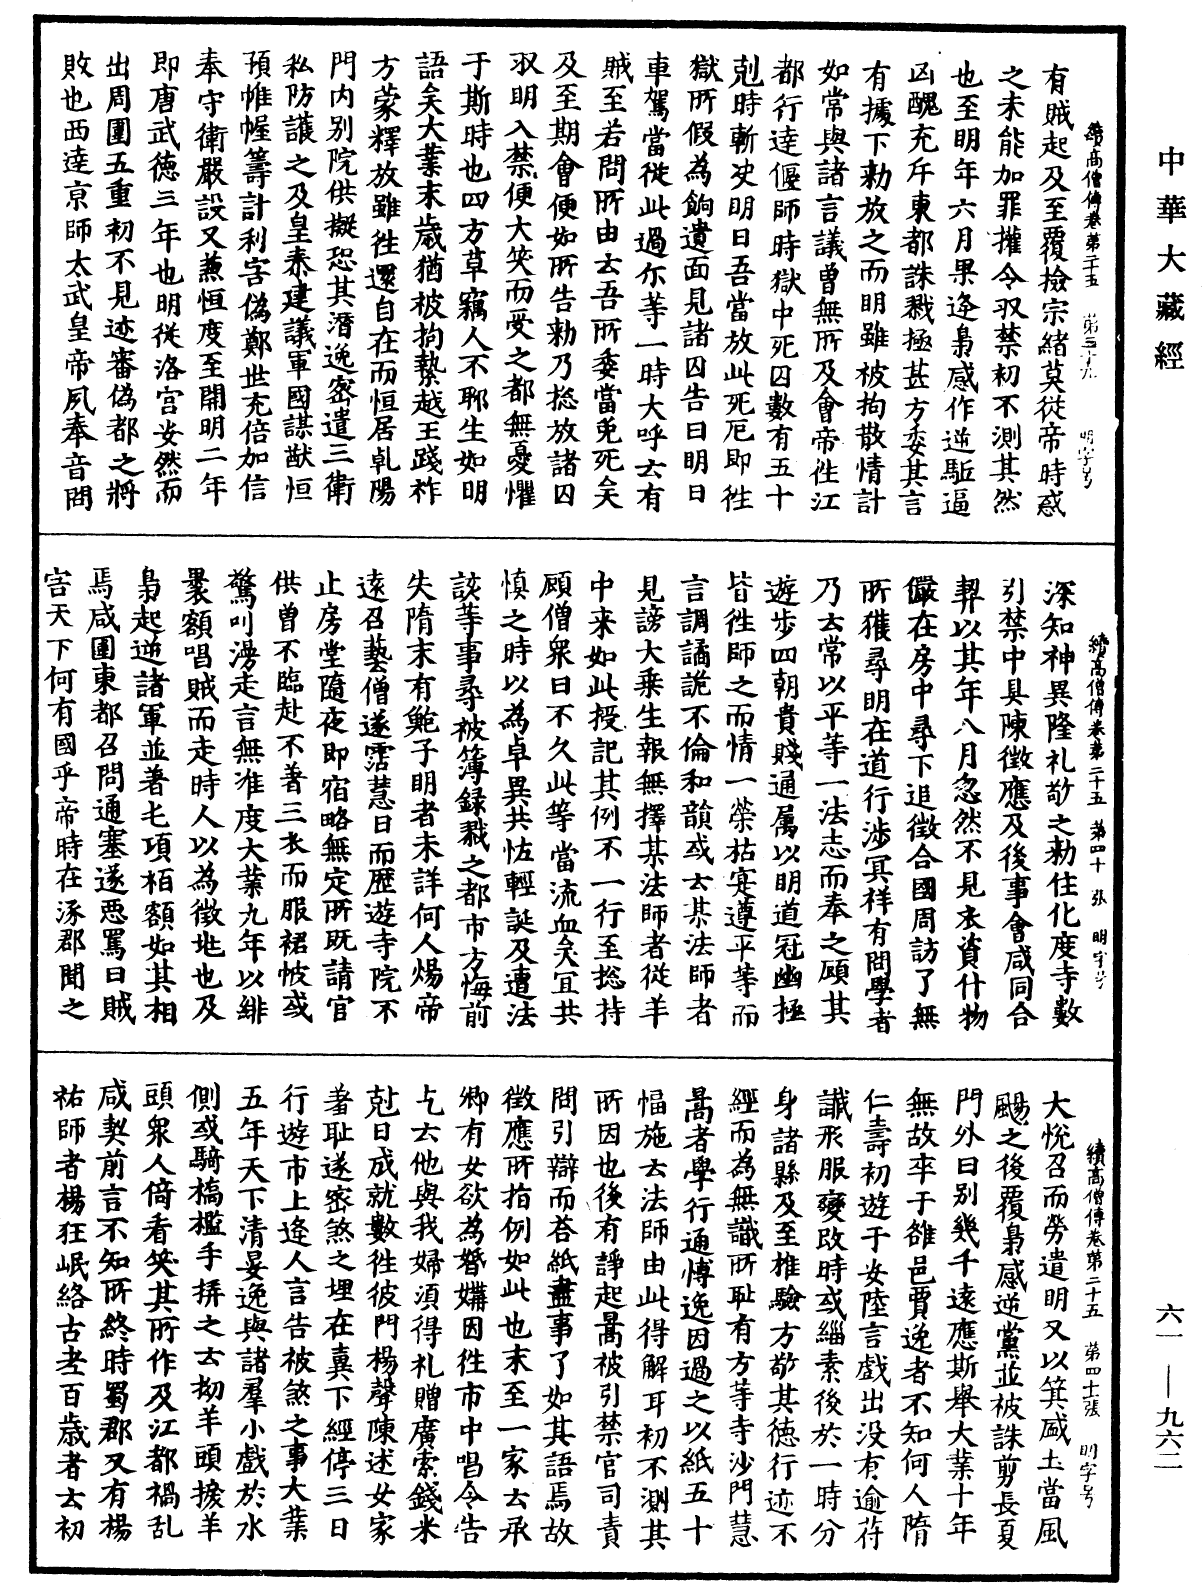 中華大藏經
續高僧傳卷第二十五　第三十九　明字号
有賊起及至覆檢宗緒莫從帝時惑
之未能加罪攉令収禁初不測其然
也至明年六月果逢梟感作逆駈逼
凶醜充斥東都誅戮極甚方委其言
有據下勑放之而明雖被拘散情計
如常與諸言議曾無所及會帝徃江
都行達偃師時獄中死囚數有五十
剋時斬决明日吾當放此死厄即徃
獄所假為餉遺面見諸囚告曰明日
車駕當從此過尓等一時大呼云有
賊至若問所由云吾所委當免死矣
及至期會便如所告勑乃捴放諸囚
収明入禁便大笑而受之都無憂懼
于斯時也四方草竊人不聊生如明
語矣大業末歲猶被拘縶越王踐祚
方蒙釋放雖徃還自在而恒居乹陽
門内别院供擬恐其潛逸密遣三衛
私防護之及皇泰建議軍國謀猷恒
預帷幄籌計利害偽鄭世充倍加信
奉守衛嚴設又兼恒度至開明二年
即唐武徳三年也明從洛宫安然而
出周圍五重初不見迹審偽都之將
敗也西達京師太武皇帝夙奉音問
續高僧傳卷第二十五　第四十張　明字号
深知神異隆礼敬之勑住化度寺數
引禁中具陳徵應及後事會咸同合
契以其年八月忽然不見衣資什物
儼在房中尋下追徵合國周訪了無
所獲尋明在道行渉冥祥有問學者
乃云常以平等一法志而奉之顧其
遊步四朝貴賤通属以明道冠幽極
皆徃師之而情一榮枯寔遵平等而
言調譎詭不倫和韻或云某法師者
見謗大乗生報無擇某法師者從羊
中来如此授記其例不一行至捴持
顧僧衆曰不久此等當流血矣宜共
慎之時以為卓異共恠輕誕及遭法
該等事尋被簿録戮之都市方悔前
失隋末有鮑子明者未詳何人煬帝
遠召藝僧遂霑慧日而歴遊寺院不
止房堂隨夜即宿略無定所既請官
供曾不臨赴不著三衣而服裙帔或
驚叫漫走言無准度大葉九年以緋
褁額唱賊而走時人以為徵地也及
梟起逆諸軍並著毛項栢額如其相
焉咸圍東都召問通塞遂惡罵曰賊
害天下何有國乎帝時在涿郡聞之
續高僧傳卷第二十五　第四十一張　明字号
大悅召而勞遣明又以箕盛土當風
颺之後覆梟感逆黨並被誅剪長夏
門外日别幾千遠應斯舉大業十年
無故卒于雒邑賈逸者不知何人隋
仁壽初遊于安陸言戲出没有逾符
讖形服變改時或緇素後於一時分
身諸縣及至推驗方敬其德行迹不
經而為無識所耻有方等寺沙門慧
暠者學行通愽逸因過之以紙五十
幅施云法師由此得解耳初不測其
所因也後有諍起暠被引禁官司責
問引辯而荅紙盡事了如其語焉故
徵應所指例如此也末至一家云承
卿有女欲為婚媾因徃市中唱令告
乞云他與我婦須得礼贈廣索錢米
尅日成就數徃彼門楊聲陳述女家
羞耻遂密煞之埋在糞下經停三日
行遊市上逢人言告被煞之事大業
五年天下清晏逸與諸羣小戲於水
側或騎槗檻手挵之云拗羊頭捩羊
頭衆人倚看笑其所作及江都禍乱
咸契前言不知所終時蜀郡又有楊
祐師者楊狂岷絡古老百歲者云初
六一——九六二